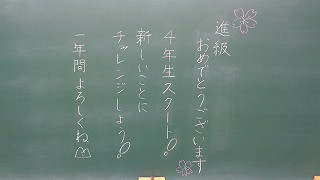 進級
おめでとうございます
4年生スタート!
新しいことに
チャレンジしよう!
一年間よろしくね